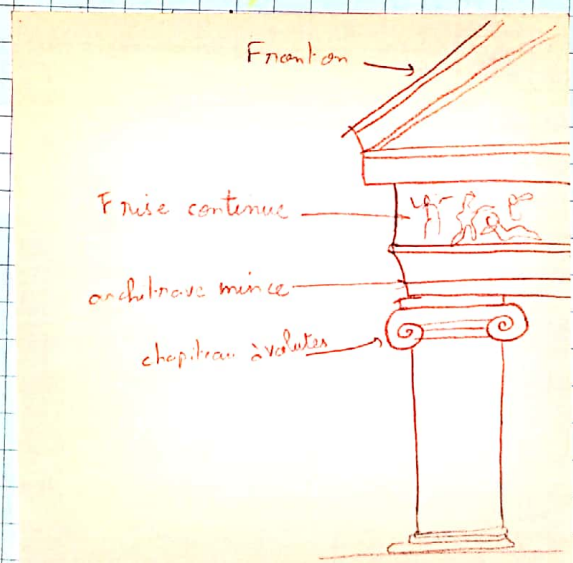 Fronton
Frise continue
architrave mince
chapiteau à volutes